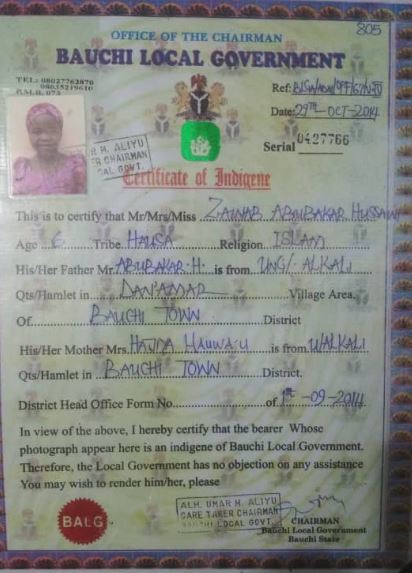 805
OFFICE OF THE CHAIRMAN
BAUCHI LOCAL GOVERNMENT
TEL: 08027762870
08035219610
P.M.B. 073
Ref:
Date: 29TH - OCT - 2014
Serial 0427766
R H. ALIYU
ER CHAIRMAN
CAL GOVT.
Certificate of Indigene
This is to certify that Mr/Mrs/Miss ZAINAB ABUBAKAR HUSSAINI
Age 6 Tribe HAUSA Religion ISLAM
His/Her Father Mr. ABUBAKAR H. is from UNG/ ALKALI
Qts/Hamlet in DAN'AMAR Village Area.
Of BAUCHI TOWN District
His/Her Mother Mrs. HAJJA HAUWA'U is from U/ALKALI
Qts/Hamlet in BAUCHI TOWN District.
District Head Office Form No. of 1st -09-2014
In view of the above, I hereby certify that the bearer Whose
photograph appear here is an indigene of Bauchi Local Government.
Therefore, the Local Government has no objection on any assistance
You may wish to render him/her, please
BALG
ALH. UMAR H. ALIYU
CARE TAKER CHAIRMAN
BAUCHI LOCAL GOVT.
CHAIRMAN
Bauchi Local Government
Bauchi State